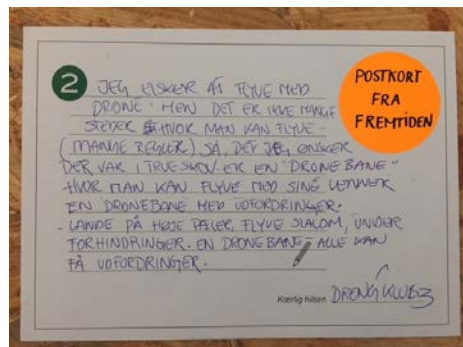 2
POSTKORT
FRA
FREMTIDEN
JEG ELSKER AT FLYVE MED
DRONE. MEN DET ER IKKE MANGE
STEDER HVOR MAN KAN FLYVE.
(MANGE REGLER) SÅ, DET JEG ØNSKER
DER VAR I TRUE SKOV ER EN "DRONEBANE"
HVOR MAN KAN FLYVE MED SINE VENNER
EN DRONEBANE MED UDFORDRINGER.
- LANDE PÅ HØJE PÆLER, FLYVE SLALOM, UNDER
FORHINDRINGER. EN DRONEBANE ALLE KAN
FÅ UDFORDRINGER.
Kærlig hilsen DRENG KLUB3